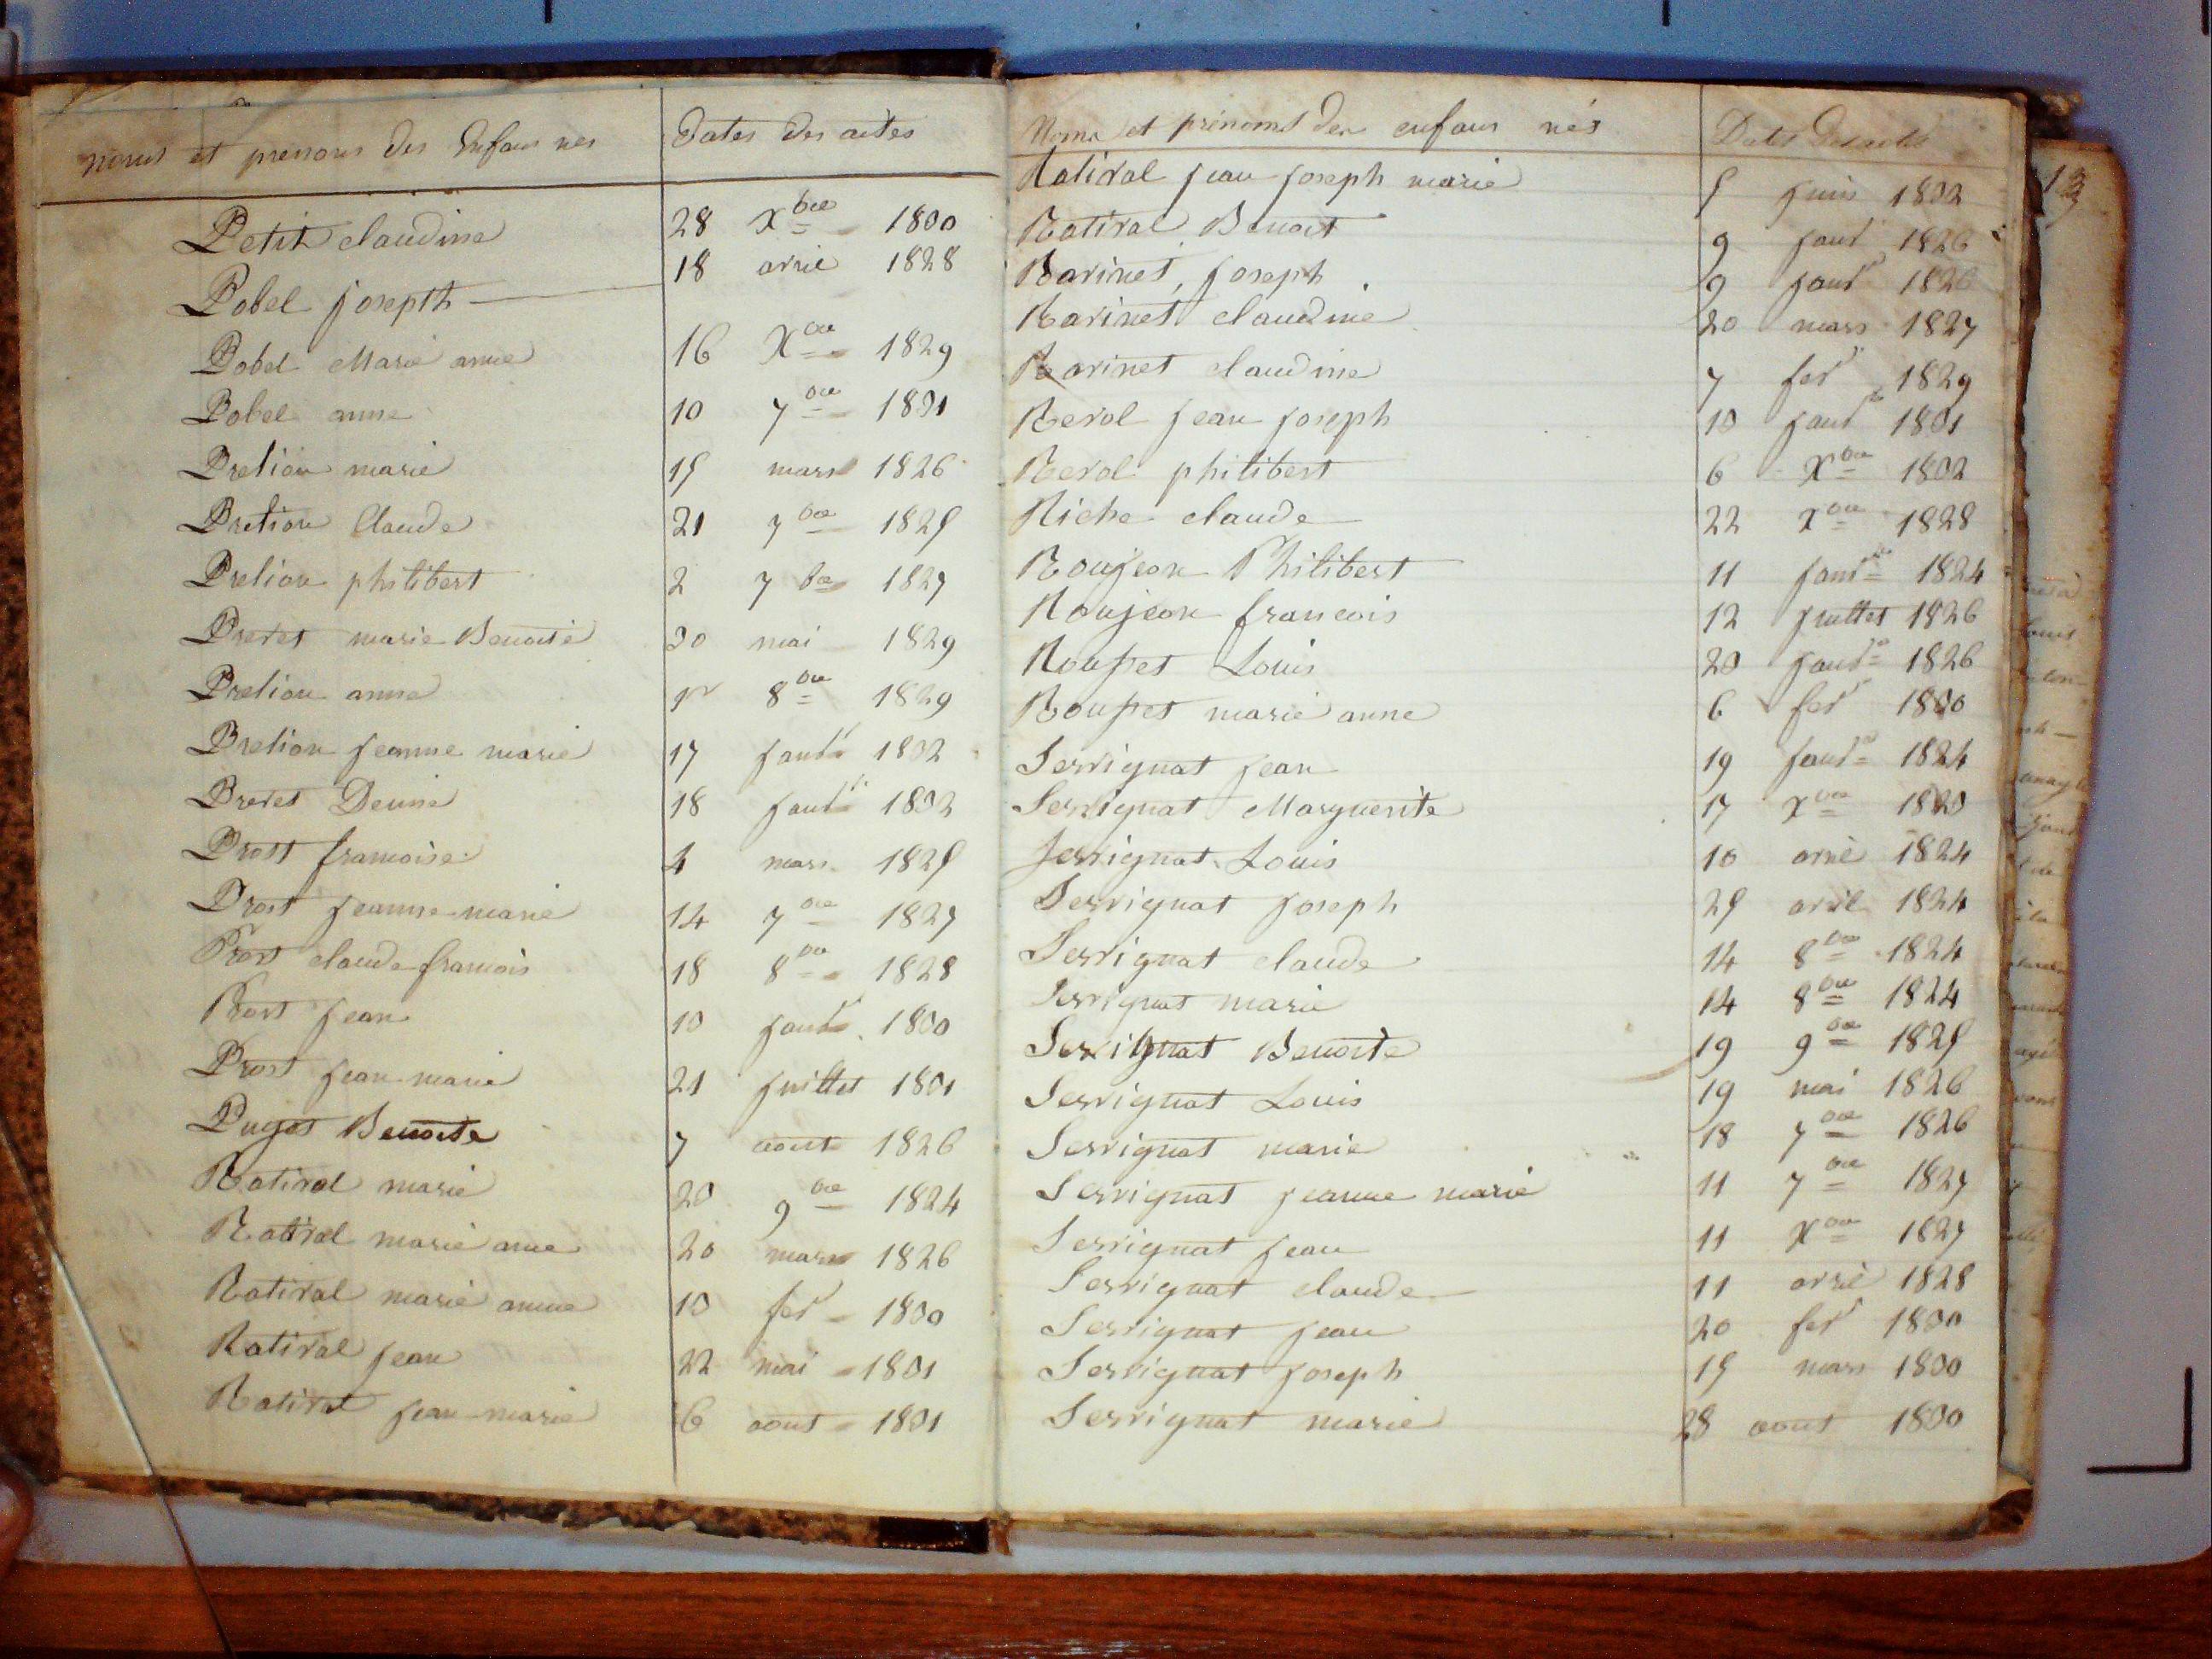 noms et prenoms des Enfans nes
Dates des actes
Petit claudine 28 Xbre 1830
Pobel josepth 18 avril 1828
Pobel Marie anne 16 Xbre 1829
Pobel anne 10 7bre 1831
Prelion marie 15 mars 1826
Prelion Claude 21 7bre 1825
Prelion philibert 2 7bre 1827
Prevet marie Benoite 30 mai 1829
Prelion anne 1r 8bre 1829
Prelion jeanne marie 17 janvr 1832
Prevet Denise 18 janvr 1832
Prost francoise 4 mars 1825
Prost jeanne marie 14 7bre 1827
Prost claude francois 18 8bre 1828
Prost jean 10 janvr 1830
Prost jean marie 21 juillet 1831
Pugot Benoite 7 aout 1826
Rativel marie 20 9bre 1824
Rativel marie anne 20 mars 1826
Rativel marie anne 10 fer 1830
Rativel jean 22 mai 1831
Rativel jean marie 6 aout 1831
Noms et prénoms des enfans nés
Dates des actes
Rativel jean joseph marie 5 juin 1832
Rativel Benoit 9 janvr 1826
Ravinet, joseph 9 janvr 1826
Ravinet claudine 20 mars 1827
Ravinet claudine 7 fer 1829
Revol jean joseph 10 janvr 1831
Revol philibert 6 Xbre 1832
Riche claude 22 Xbre 1828
Roujeon Philibert 11 janvr 1824
Roujeon francois 12 juillet 1826
Rousset Louis 20 janvr 1826
Rousset marie anne 6 fer 1830
Serrignat jean 19 janvr 1824
Serrignat Marguerite 17 Xbre 1823
Serrignat Louis 10 avril 1824
Serrignat joseph 25 avril 1824
Serrignat claude 14 8bre 1824
Serrignat marie 14 8bre 1824
Serrignat Benoite 19 9bre 1825
Serrignat Louis 19 mai 1826
Serrignat marie 18 7bre 1826
Serrignat jeanne marie 11 7bre 1827
Serrignat jean 11 Xbre 1827
Serrignat claude 11 avril 1828
Serrignat jean 20 fer 1830
Serrignat joseph 15 mars 1830
Serrignat marie 28 aout 1830